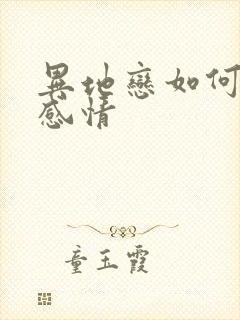 異地戀如何
感情
童玉霞